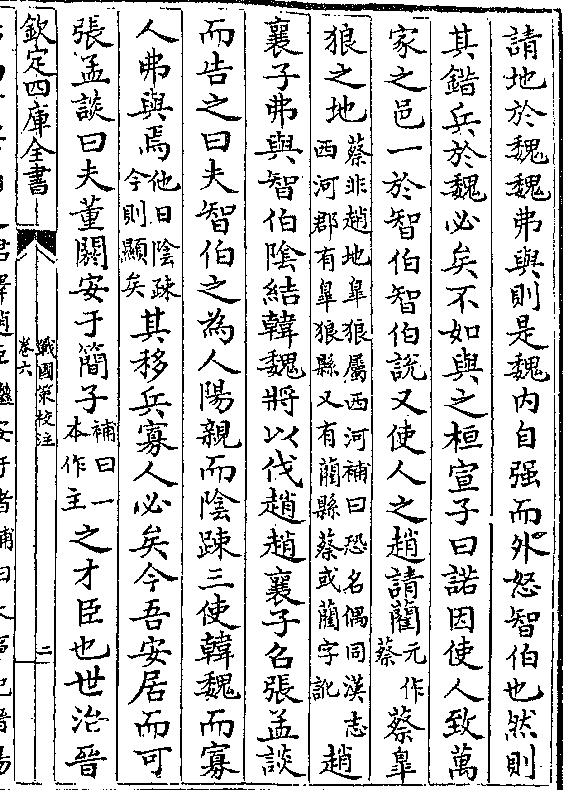 請地於魏魏弗與則是魏内自强而外怒智伯也然則
其錯兵於魏必矣不如與之桓宣子曰諾因使人致萬
家之邑一於智伯智伯說又使人之趙請藺元作蔡蔡臯
狼之地蔡非趙地臯狼屬西河補曰恐名偶同漢志西河郡有臯狼縣又有藺縣蔡或藺字訛趙
襄子弗與智伯陰結韓魏將以伐趙趙襄子召張孟談
而告之曰夫智伯之為人陽親而陰踈三使韓魏而寡
人弗與焉他日陰踈今則顯矣其移兵寡人必矣今吾安居而可
張孟談曰夫董閼安于簡子補曰一本作主之才臣也世治晉
欽定四庫全書
戰國策校注
卷六
二